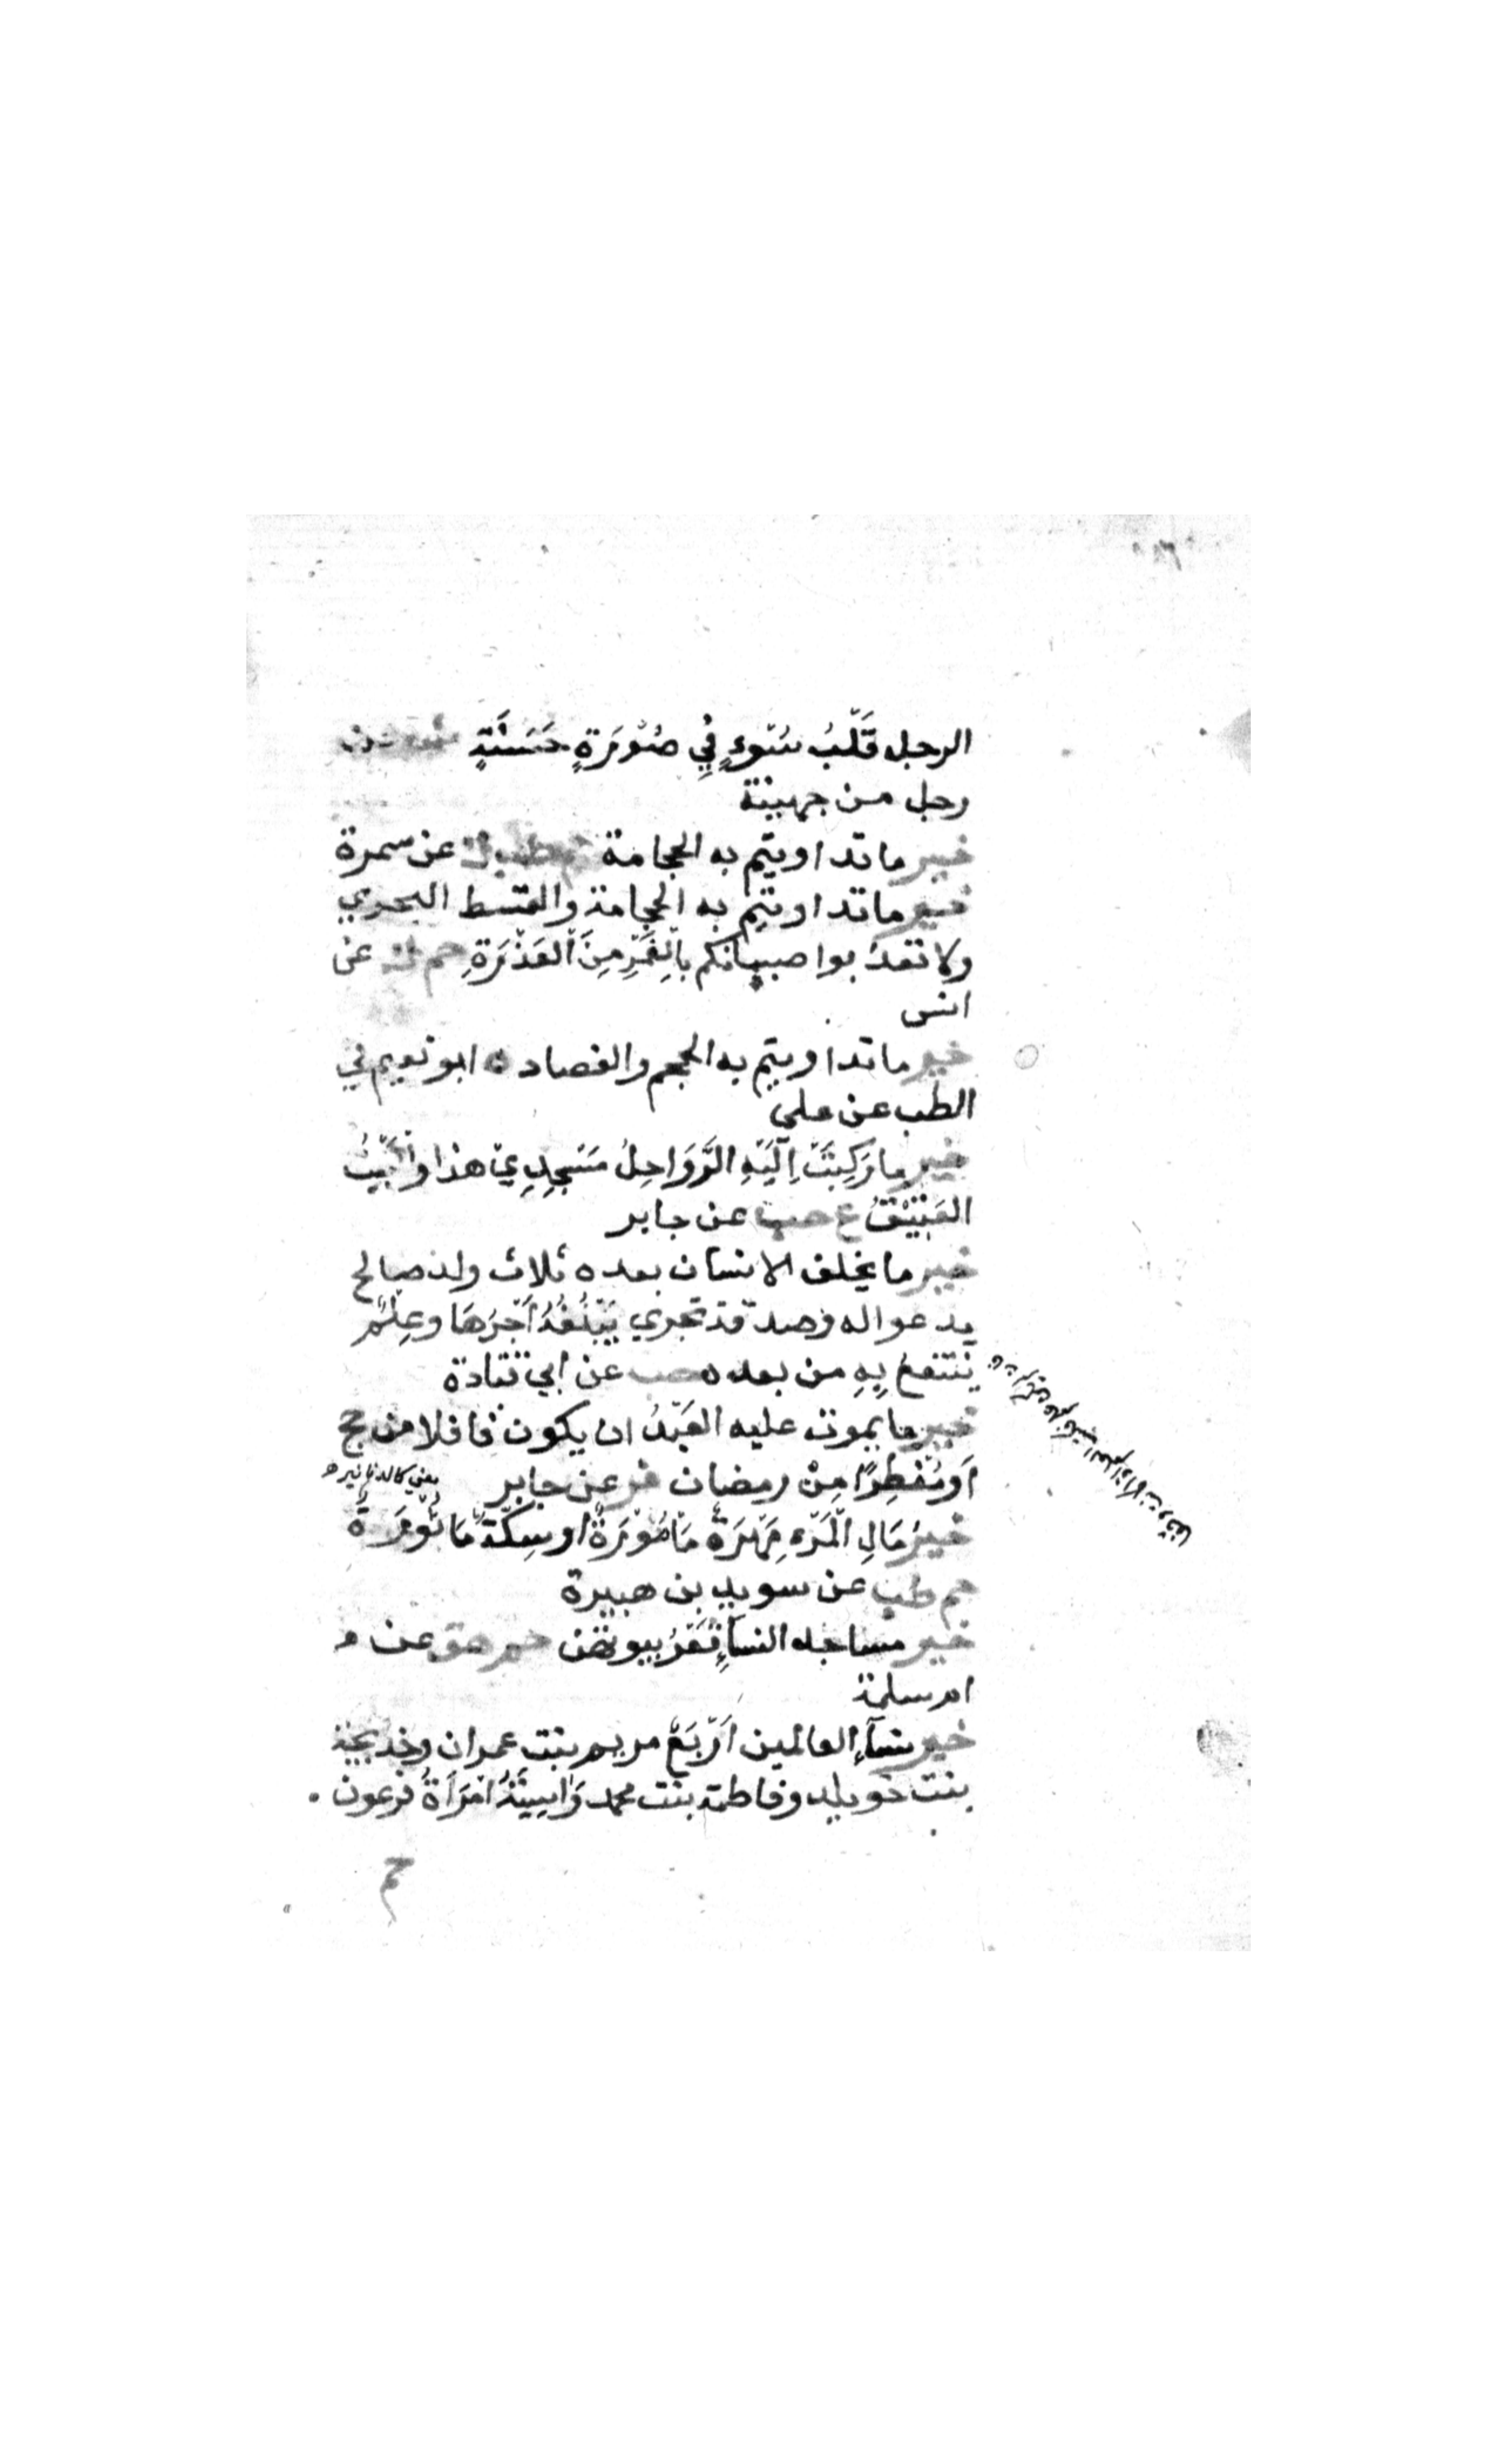 الرجل قَلْبُ سُوءٍ فِي صُوْرَةٍ حَسَنَةٍ
رجل من جهينة
خير ما تداويتم به الحجامة حم طب ك عن سمرة
خير ما تداويتم به الحجامة والقسط البحري
ولا تعذبوا صبيانكم بِالْغَمْزِ مِنَ الْعَذْرَةِ حم ن عن
انس
خير ما تداويتم به الحجم والفصاده ابو نعيم في
الطب عن علي
خير ما رَكِبَتْ اِلَيْهِ الرَّوَاحِلُ مَسْجِدِي هذا وَالْبَيْتُ
العَتِيْقُ ع حب عن جابر
خير ما يخلف الانسان بعده ثلاث ولد صالح
يدعو اله وصدقة تجري يَبْلُغُهُ أَجْرُهَا وعِلْمٌ
ينتفعُ بِهِ من بعده حب عن ابي قتادة
خير ما يموت عليه العَبْدُ ان يكون قافلا من حج
اَوْ مُفْطِرًا مِنْ رمضان فر عن جابر
يعني كالدنانير ه
خيرُ مَالِ الْمَرْءِ مُهْرَةٌ مَأمُوْرَةٌ او سِكَّةٌ مَابُوْرَةٌ
حم طب عن سويد بن هبيرة
خير مساجد النسآءِ قَعْرُ بيوتهن حم هق عن
ام سلمة
خير نسآءِ العالمين اَرْبَعٌ مريم بنت عمران وخديجة
بنت خويلد وفاطمة بنت محمد وَاسِيَةُ امْرَأَةُ فرعون
حم